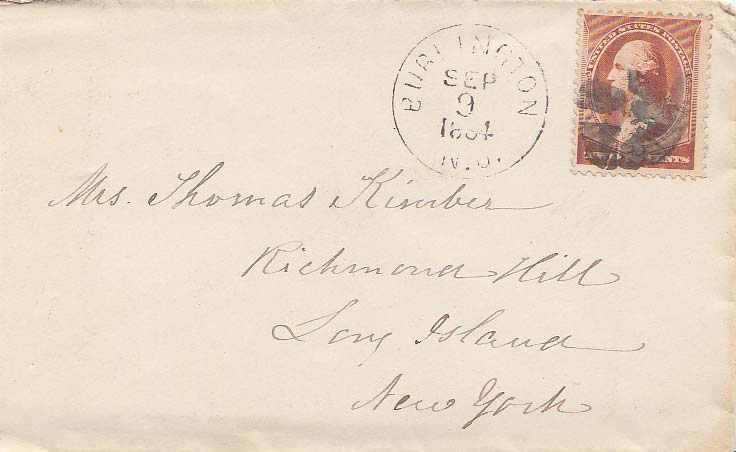 BURLINGTON
SEP
9
1884
N.J.
UNITED STATES POSTAGE
TWO CENTS
Mrs. Thomas Kimber
Richmond Hill
Long Island
New York